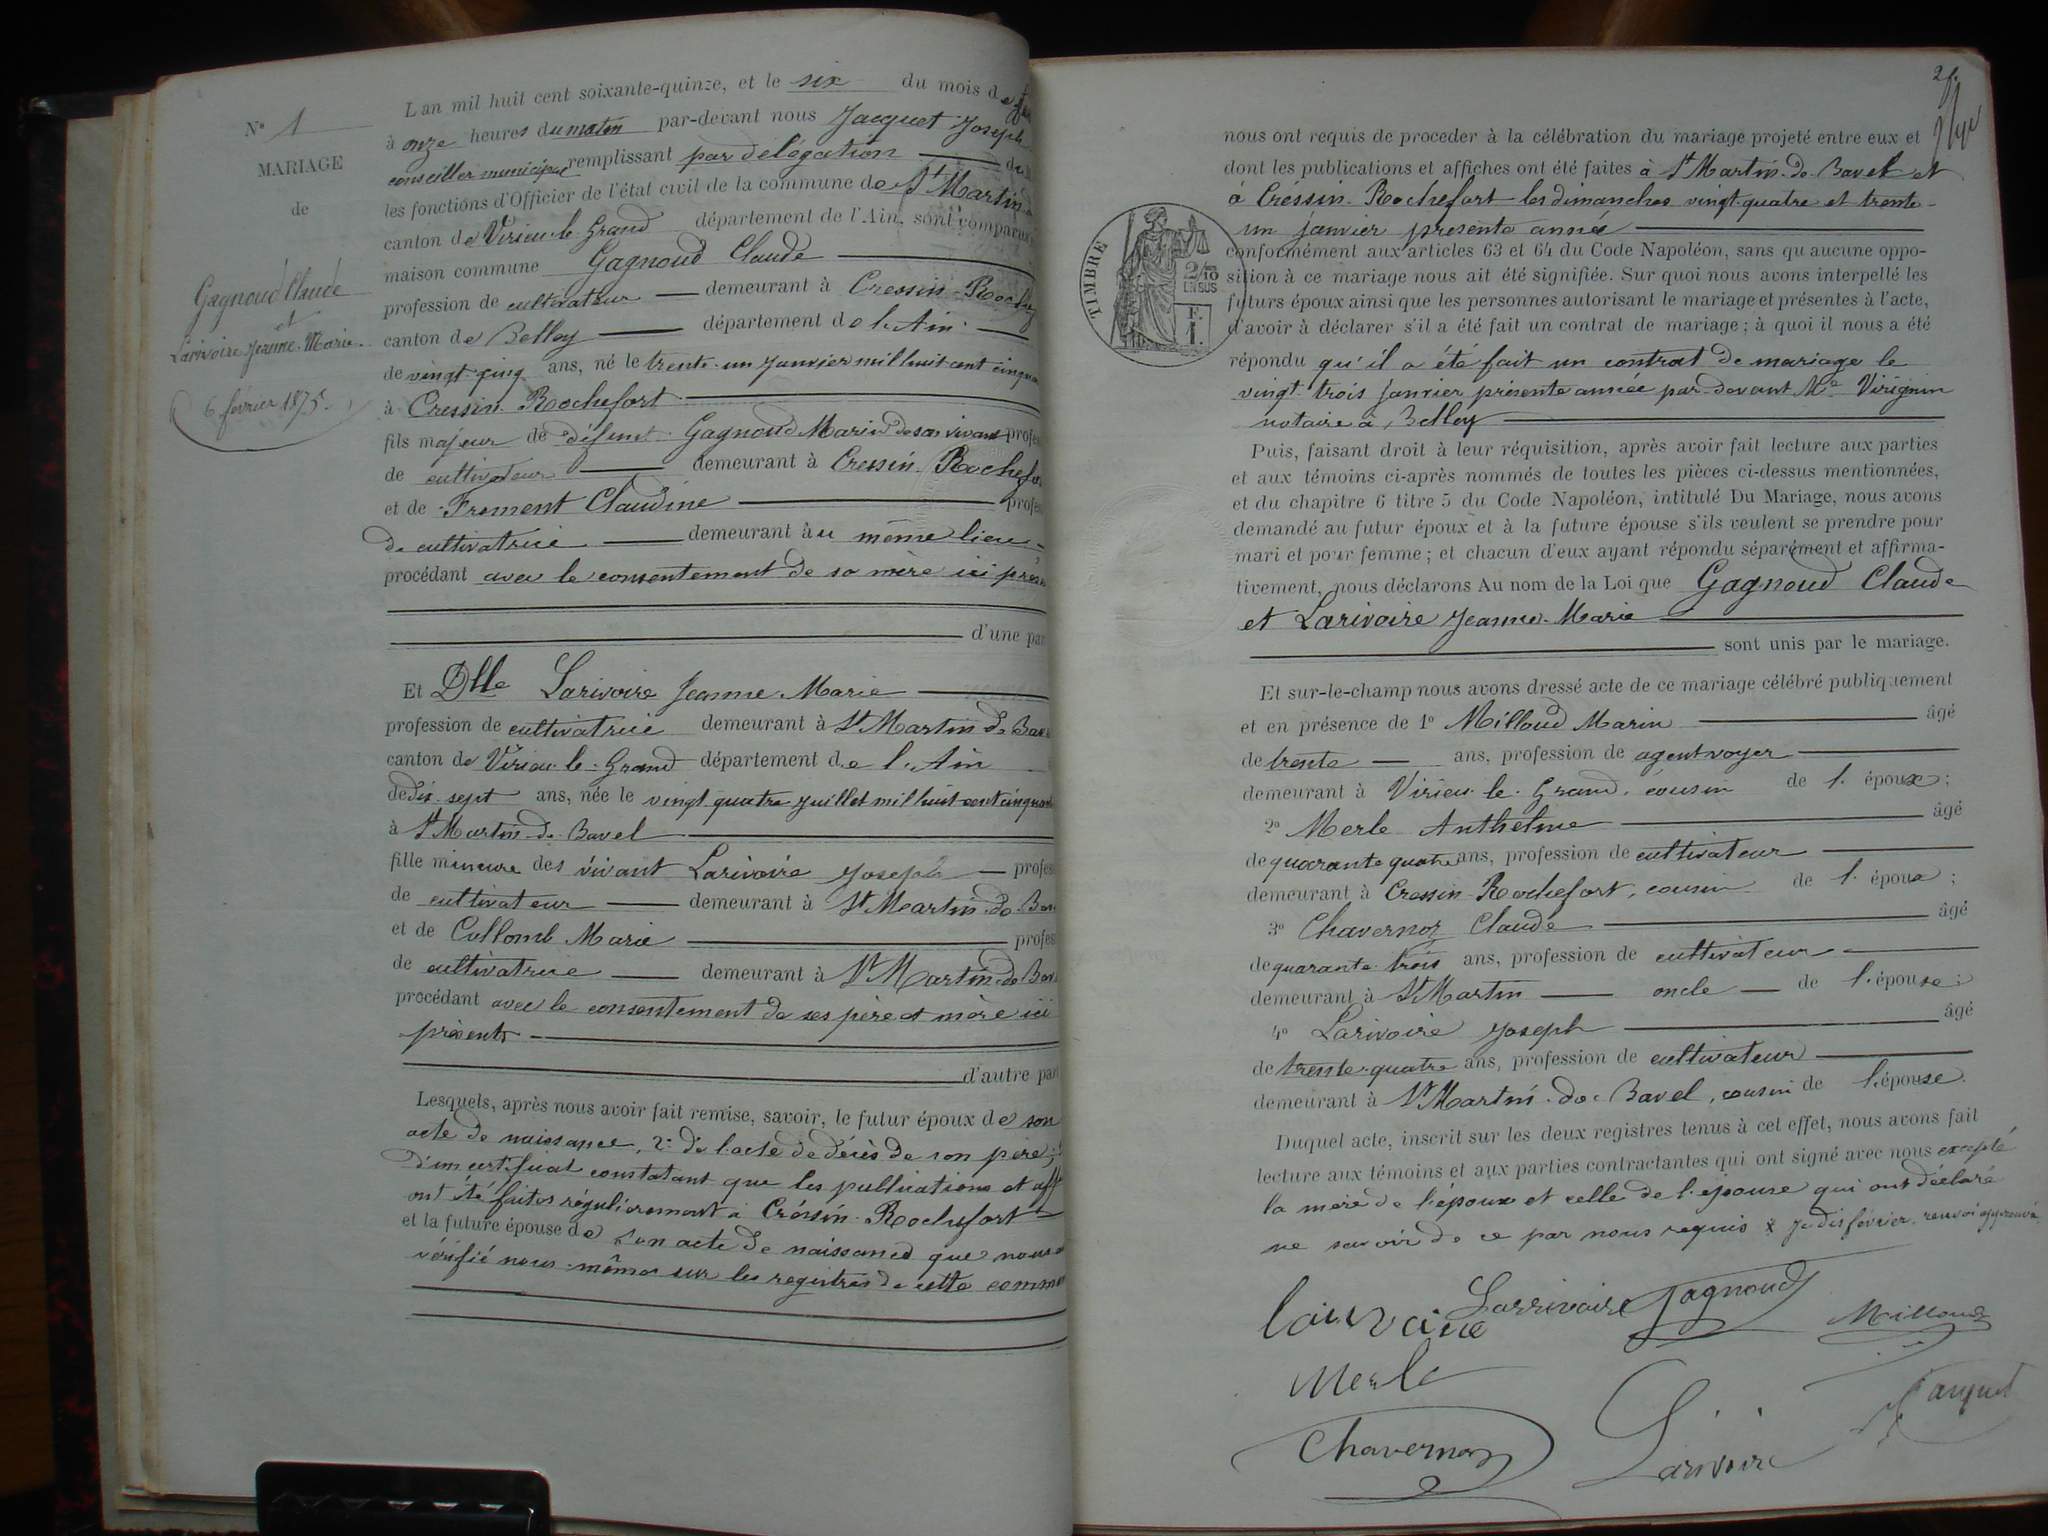 N° 1
MARIAGE
de
Gagnoud Claude
et
Larivoire Jeanne-Marie.
6 février 1875.
L'an mil huit cent soixante-quinze, et le six du mois de
à onze heures du matin par-devant nous Jacquet Joseph
conseiller municipal remplissant par délégation
les fonctions d'Officier de l'état civil de la commune de St Martin-d
canton de Virieu-le-Grand département de l'Ain, sont comparus
maison commune Gagnoud Claude
profession de cultivateur demeurant à Cressin-Rochef
canton de Belley département de l'Ain
de vingt-cinq ans, né le trente-un Janvier mil huit cent cinqua
à Cressin-Rochefort
fils majeur de défunt Gagnoud Marin de son vivant profes
de cultivateur demeurant à Cressin-Rochefor
et de Froment Claudine profes
de cultivatrice demeurant àu même lieu
procédant avec le consentement de sa mère ici prés
d'une par
Et Dlle Larivoire Jeanne Marie
profession de cultivatrice demeurant à St Martin de Bav
canton de Virieu-le-Grand département de l'Ain
de dix-sept ans, née le vingt quatre juillet mil huit cent cinquant
à St Martin-de-Bavel
fille mineure des vivant Larivoire Joseph profes
de cultivateur demeurant à St Martin-de-Bav
et de Collomb Marie profes
de cultivatrice demeurant à St Martin-de-Bav
procédant avec le consentement de ses père et mère ici
présents
d'autre par
Lesquels, après nous avoir fait remise, savoir, le futur époux de son
acte de naissance, 2° de l'acte de décès de son père;
d'un certificat constatant que les publications et aff
ont été faites régulièrement à Cressin-Rochefort
et la future épouse de son acte de naissance que nous a
vérifié nous-même sur les registres de cette commu
nous ont requis de procéder à la célébration du mariage projeté entre eux et
dont les publications et affiches ont été faites à St Martin-de-Bavel et
à Cressin-Rochefort les dimanches vingt-quatre et trente-
un janvier présente année
TIMBRE
2/10 EN SUS
F. 1.
conformément aux articles 63 et 64 du Code Napoléon, sans qu'aucune oppo-
sition à ce mariage nous ait été signifiée. Sur quoi nous avons interpellé les
futurs époux ainsi que les personnes autorisant le mariage et présentes à l'acte,
d'avoir à déclarer s'il a été fait un contrat de mariage; à quoi il nous a été
répondu qu'il a été fait un contrat de mariage le
vingt-trois Janvier présente année par-devant Me Virignin
notaire à Belley
Puis, faisant droit à leur réquisition, après avoir fait lecture aux parties
et aux témoins ci-après nommés de toutes les pièces ci-dessus mentionnées,
et du chapitre 6 titre 5 du Code Napoléon, intitulé Du Mariage, nous avons
demandé au futur époux et à la future épouse s'ils veulent se prendre pour
mari et pour femme; et chacun d'eux ayant répondu séparément et affirma-
tivement, nous déclarons Au nom de la Loi que Gagnoud Claude
et Larivoire Jeanne-Marie
sont unis par le mariage.
Et sur-le-champ nous avons dressé acte de ce mariage célébré publiquement
et en présence de 1° Milloud Marin âgé
de trente ans, profession de agent voyer
demeurant à Virieu-le-Grand, cousin de l'époux;
2° Merle Anthelme âgé
de quarante quatre ans, profession de cultivateur
demeurant à Cressin-Rochefort, cousin de l'époux;
3° Chavernoz Claude âgé
de quarante-trois ans, profession de cultivateur
demeurant à St Martin oncle de l'épouse;
4° Larivoire Joseph âgé
de trente-quatre ans, profession de cultivateur
demeurant à St Martin-de-Bavel, cousin de l'épouse.
Duquel acte, inscrit sur les deux registres tenus à cet effet, nous avons fait
lecture aux témoins et aux parties contractantes qui ont signé avec nous excepté
la mère de l'époux et celle de l'épouse qui ont déclaré
ne savoir de ce par nous requis x je dis février, renvoi approuvé
Larivoire Larrivoire Gagnoud Milloud
Merle
Chavernoz Larivoire Jacquet